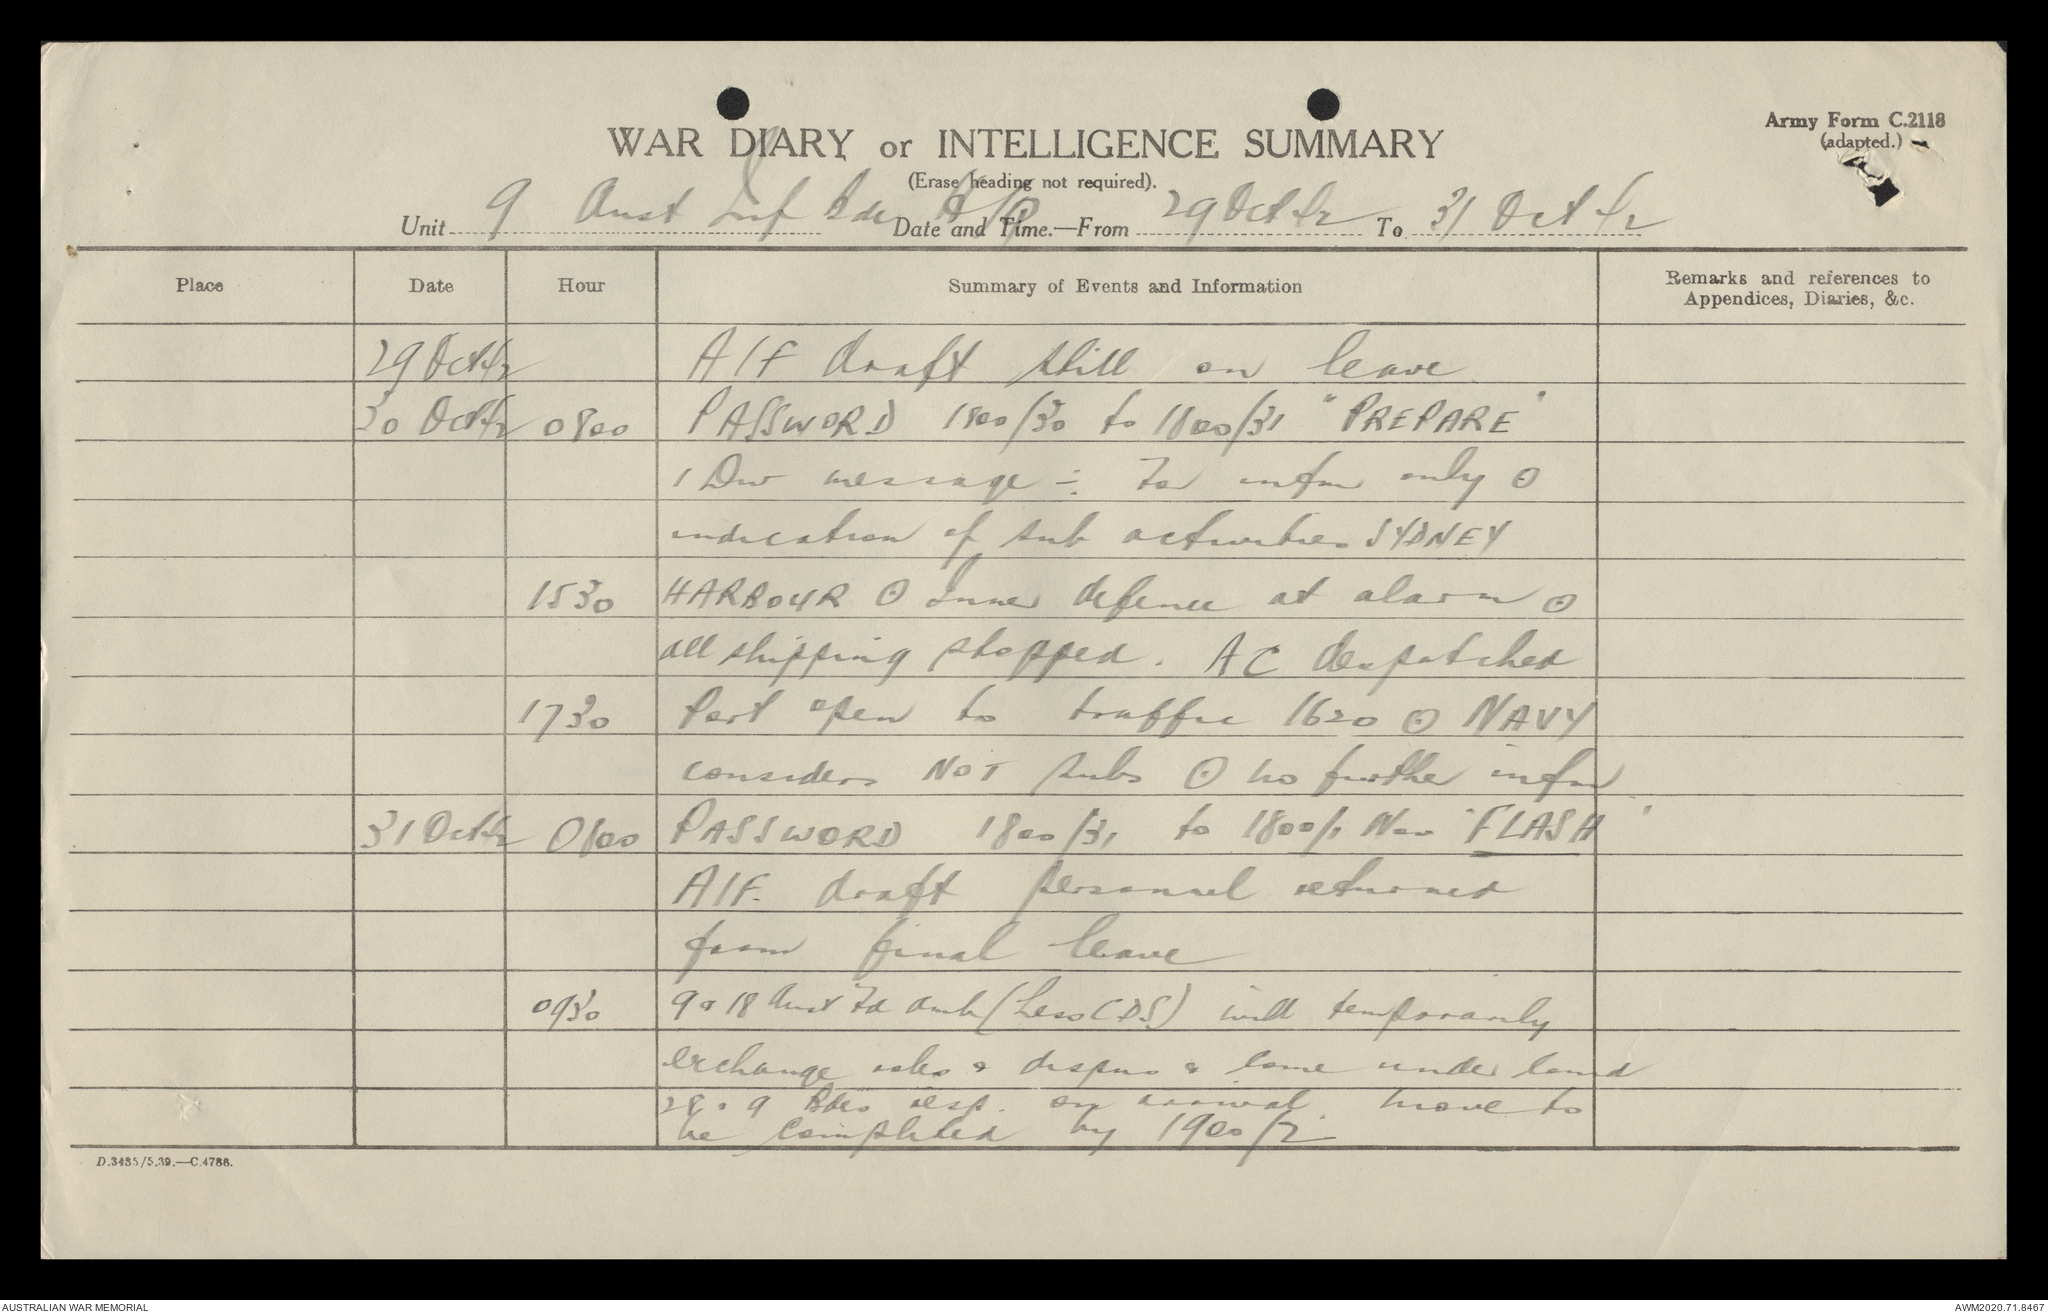 Army Form C.2118
(adapted.)
WAR DIARY or INTELLIGENCE SUMMARY
(Erase heading not required).
Unit 9 Aust Inf Bde H/Q Date and Time.—From 29 Oct 42 To 31 Oct 42
Place Date Hour Summary of Events and Information Remarks and references to
Appendices, Diaries, &c.
29 Oct 42 AIF draft still on leave
30 Oct 42 0800 PASSWORD 1800/30 to 1800/31 "PREPARE"
1 Div message :- For infm only ⊙
indication of sub activities SYDNEY
1530 HARBOUR ⊙ Inner defence at alarm ⊙
all shipping stopped. AC despatched
1730 Port open to traffic 1620 ⊙ NAVY
considers NOT subs ⊙ no further infm
31 Oct 42 0800 PASSWORD 1800/31 to 1800/1 Nov "FLASH"
AIF draft personnel returned
from final leave
0930 9 & 18 Aust Fd Amb (Less CDS) will temporarily
exchange roles & dispns & come under comd
28 & 9 Bdes resp. on arrival. Move to
be completed by 1900/2
D.3435/5.39.—C.4786.
AUSTRALIAN WAR MEMORIAL AWM2020.71.8467